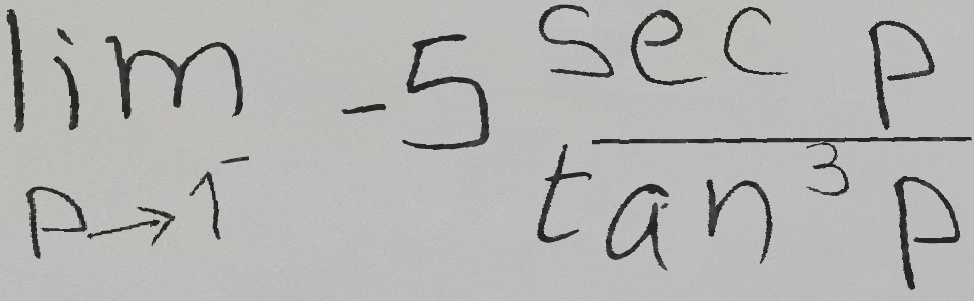 \lim_{p \to 1^-} -5 \frac{\sec p}{\tan^3 p}